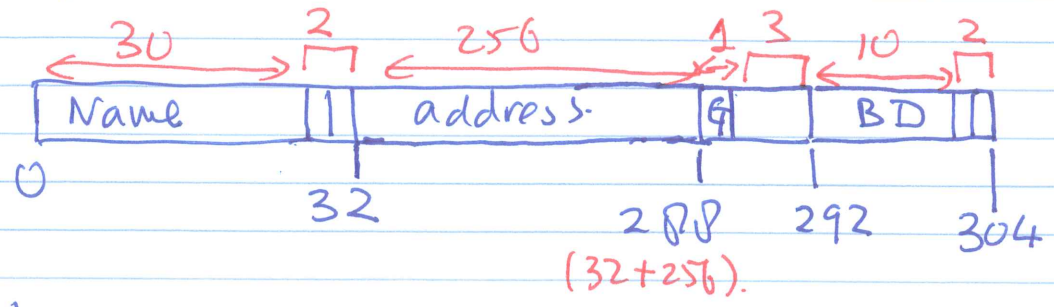 30 2 256 1 3 10 2
Name address. G BD
0 32 288 292 304
(32+256).